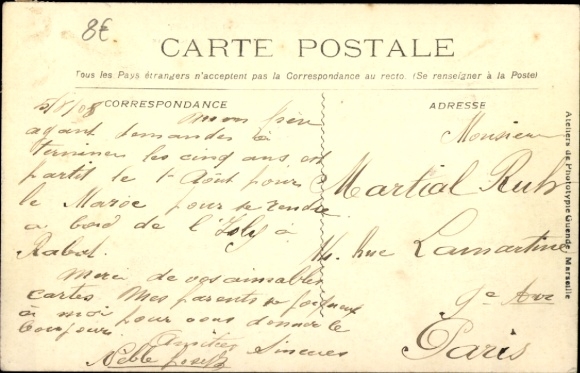 8€
CARTE POSTALE
Tous les Pays étrangers n'acceptent pas la Correspondance au recto. (Se renseigner à la Poste)
CORRESPONDANCE
5/8/08
Mon frère
ayant demandes à
terminer les cinq ans, est
partit le 1r Août pour
le Maroc pour se rendre
a bord de l'Isly à
Rabat.
Merci de vos aimables
cartes. Mes parents se joignent
à moi pour vous donner le
bonjour.
Amitiés Sincères
Noble Joseph
ADRESSE
Monsieur
Martial Ruh
14, Rue Lamartine
9e Arr
Paris
Ateliers de Phototypie Guende, Marseille